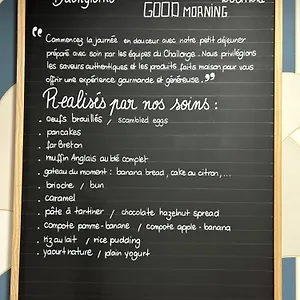 Buongiorno
GOOD MORNING
“Commencez la journée en douceur avec notre petit déjeuner
préparé avec soin par les équipes du Challonge. Nous privilégions
les saveurs authentiques et les produits faits maison pour vous
offrir une expérience gourmande et généreuse.”
Réalisés par nos soins :
. oeufs brouillés / scambled eggs
. pancakes
. far Breton
. muffin Anglais au blé complet
. gateau du moment : banana bread, cake au citron,...
. brioche / bun
. caramel
. pâte à tartiner / chocolate hazelnut spread
. compote pomme-banane / compote apple-banana
. riz au lait / rice pudding
. yaourt nature / plain yogurt